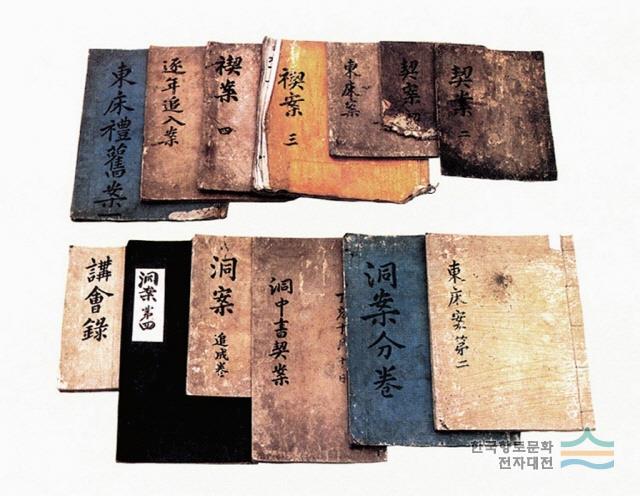 東床禮舊案一
逐年追入案
禊案 四
禊案 三
東床案
契案
契案 二
講會錄
洞案 第四
洞案
追成卷
洞中書契案
洞案分卷
東床案第二
한국향토문화
전자대전